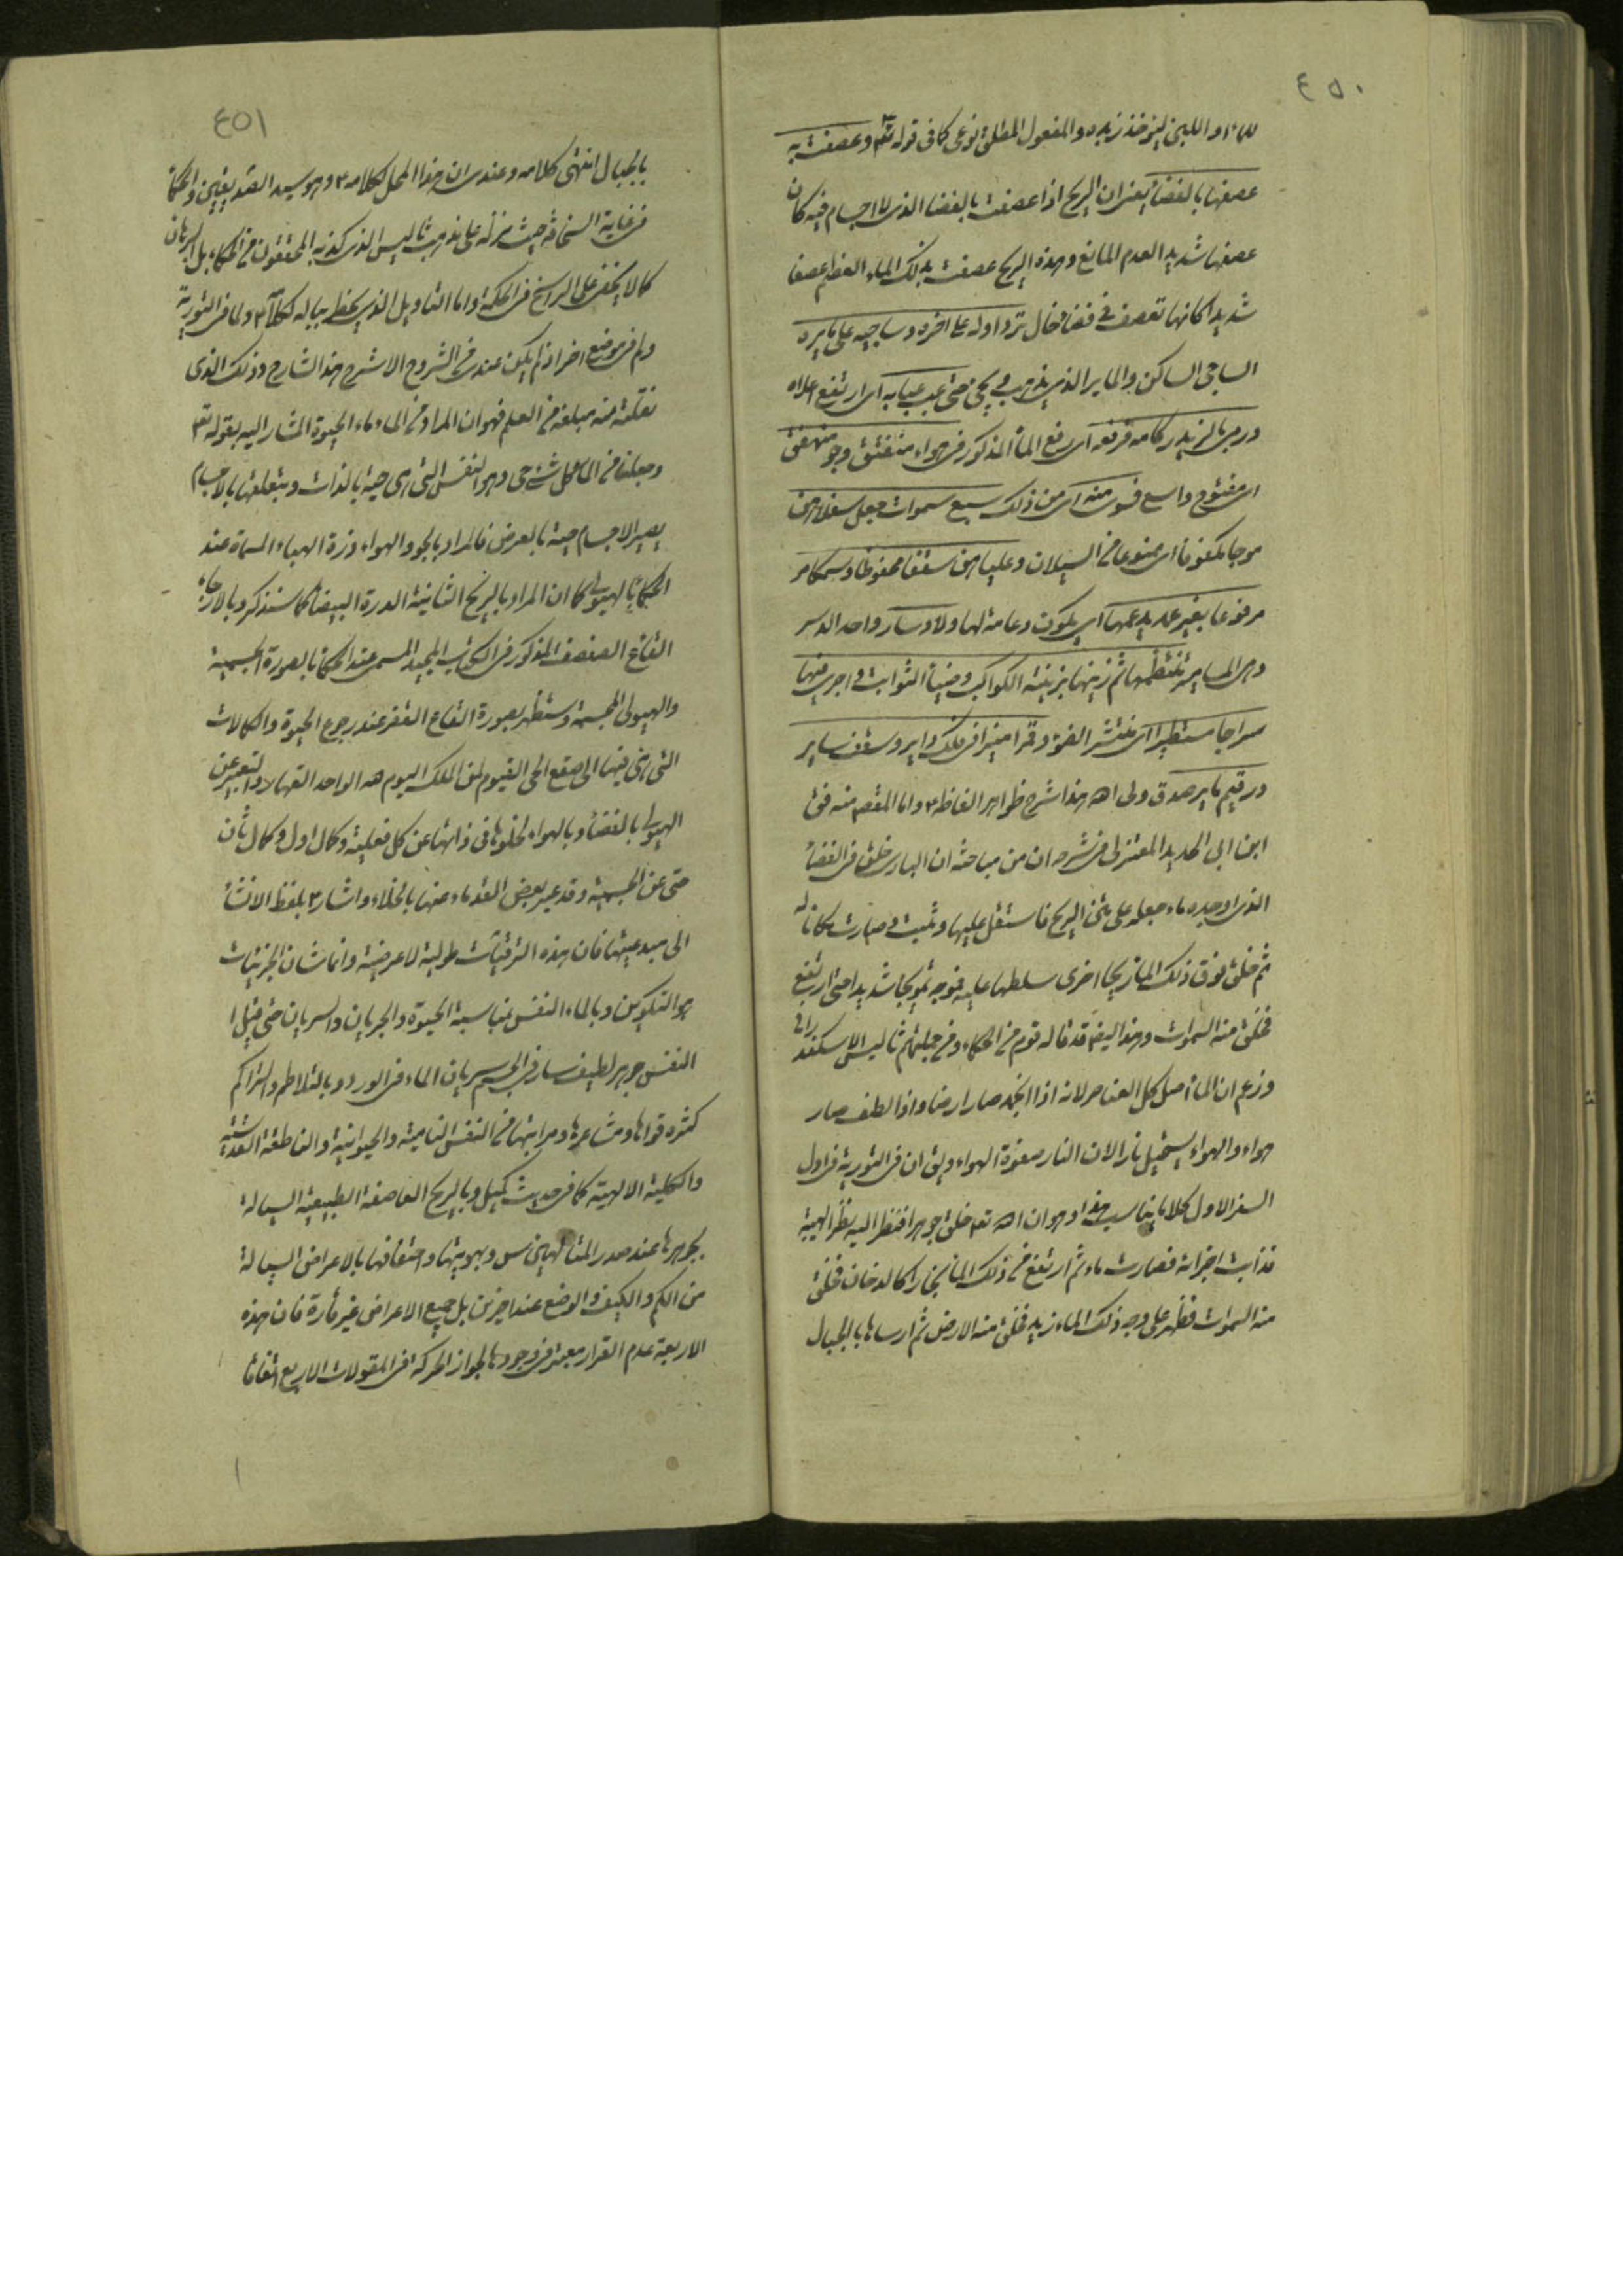 ٤٥٠
للماء او اللبن ليؤخذ زبده والمفعول المطلق نوعى كما فى قوله تعم وعصفت به
عصفها بالفضاء يعنى ان الريح اذا عصفت بالفضا الذى لا اجسام فيه كان
عصفها شديد العدم المانع وهذه الريح عصفت بذلك الماء العظيم عصفا
شديدا كانها تعصف فى فضا خال ترد اوله على اخره وساجيه على مايره
الساجى الساكن والماير الذى يذهب و يجئ حتى عب عبابه اى ارتفع اعلاه
ورمى بالزبد ركامه فرفعه اى رفع الماء المذكور فى هواء منفتق وجو منهفق
اى مفتوح واسع فسوى منه اى من ذلك سبع سموات جعل سفلاهن
موجا مكفوفا اى ممنوعا من السيلان وعلياهن سقفا محفوظا وسمكا
مرفوعا بغير عمد يدعمها اى يكون دعامة لها ولا دسار واحد الدسر
وهى المسامير تنتظمها ثم زينها بزينة الكواكب وضياء الثواقب و اجرى فيها
سراجا مستطيرا اى منتشر الضوء وقمرا منيرا فى فلك داير وسقف ساير
ورقيم ماير صدق ولى الله هذا شرح ظواهر الفاظه ع واما المقصد منه فق
ابن ابى الحديد المعتزلى فى شرحه ان من مباحثه ان البارى خلق فى الفضاء
الذى اوجده ماء جعله على متن الريح فاستقل عليها وثبت و صارت مكانا له
ثم خلق فوق ذلك الماء ريحا اخرى سلطها عليه فموجه تمويجا شديدا حتى ارتفع
فخلق منه السموات وهذا ايضا قد قاله قوم من الحكماء ومن جملتهم ثاليس الاسكندرانى
وزعم ان الماء اصل كل العناصر لانه اذا انجمد صار ارضا واذا لطف صار
هواء والهواء يستحيل نارا لان النار صفوة الهواء ويق ان فى التورية فى اول
السفر الاول كلاما يناسب هذا وهو ان الله تعم خلق جوهرا فنظر اليه نظر الهيبة
فذابت اجزائه فصارت ماء ثم ارتفع من ذلك الماء بخارا كالدخان فخلق
منه السموات فظهر على وجه ذلك الماء زبد فخلق منه الارض ثم ارساها بالجبال
٤٥١
بالجبال انتهى كلامه وعندى ان هذا المحمل لكلامه ع وهو سيد الصديقين والحكماء
فى غاية السخافه حيث نزله على مذهب ثاليس الذى كذبه المحققون من الحكماء بل البرهان
كما لا يخفى على الراسخ فى الحكمة واما التاويل الذى يخطر ببالى لكلامه ع ولما فى التورية
ولم فى موضع اخر اذ لم يكن عندى من الشروح الا شرح هذا الشارح وذلك الذى
نقلته منه مبلغه من العلم فهو ان المراد من الماء ماء الحيوة المشار اليه بقوله تعم
وجعلنا من الماء كل شئ حى وهو النفس التى هى حية بالذات وبتعلقها بالاجسام
يصير الاجسام حية بالعرض فالمراد بالجو والهواء وذرة الهباء المسماة عند
الحكماء بالهيولى كما ان المراد بالريح الثانية الدرة البيضاء كما سنذكر وبالارجاء
القاع الصفصف المذكور فى الكتاب المجيد المسمى عند الحكماء بالصورة الجسمية
والهيولى المجسمة وستظهر بصورة القاع القفر عند رجوع الحيوة والكمالات
التى هى فيها الى صقع الحى القيوم لمن الملك اليوم لله الواحد القهار والتعبير عن
الهيولى بالفضاء وبالهواء لخلوها فى ذاتها عن كل فعلية وكمال اول وكمال ثان
حتى عن الجسمية وقد عبر بعض القدماء عنها بالخلاء واشار ع بلفظ الانشاء
الى مبدعيتها فان هذه الترقيات طولية لا عرضية وانما شان الجزئيات
هو التكوين وبالماء النفس بمناسبة الحيوة والجريان والسريان حتى قيل ا
النفس جوهر لطيف سار فى الجسم سريان الماء فى الورد وبالتلاطم والتراكم
كثره قواها ومشاعرها ومراتبها من النفس النامية والحيوانية والناطقة القدسية
والكلية الالهية كما فى حديث كميل وبالريح العاصفة الطبيعية السيالة
بجوهرها عند صدر المتالهين س وبهويتها واحتفافها بالاعراض السيالة
من الكم والكيف والوضع عند اخرين بل جميع الاعراض غير قارة فان هذه
الاربعة عدم القرار معتبر فى وجودها لجواز الحركة فى المقولات الاربع اتفاقا